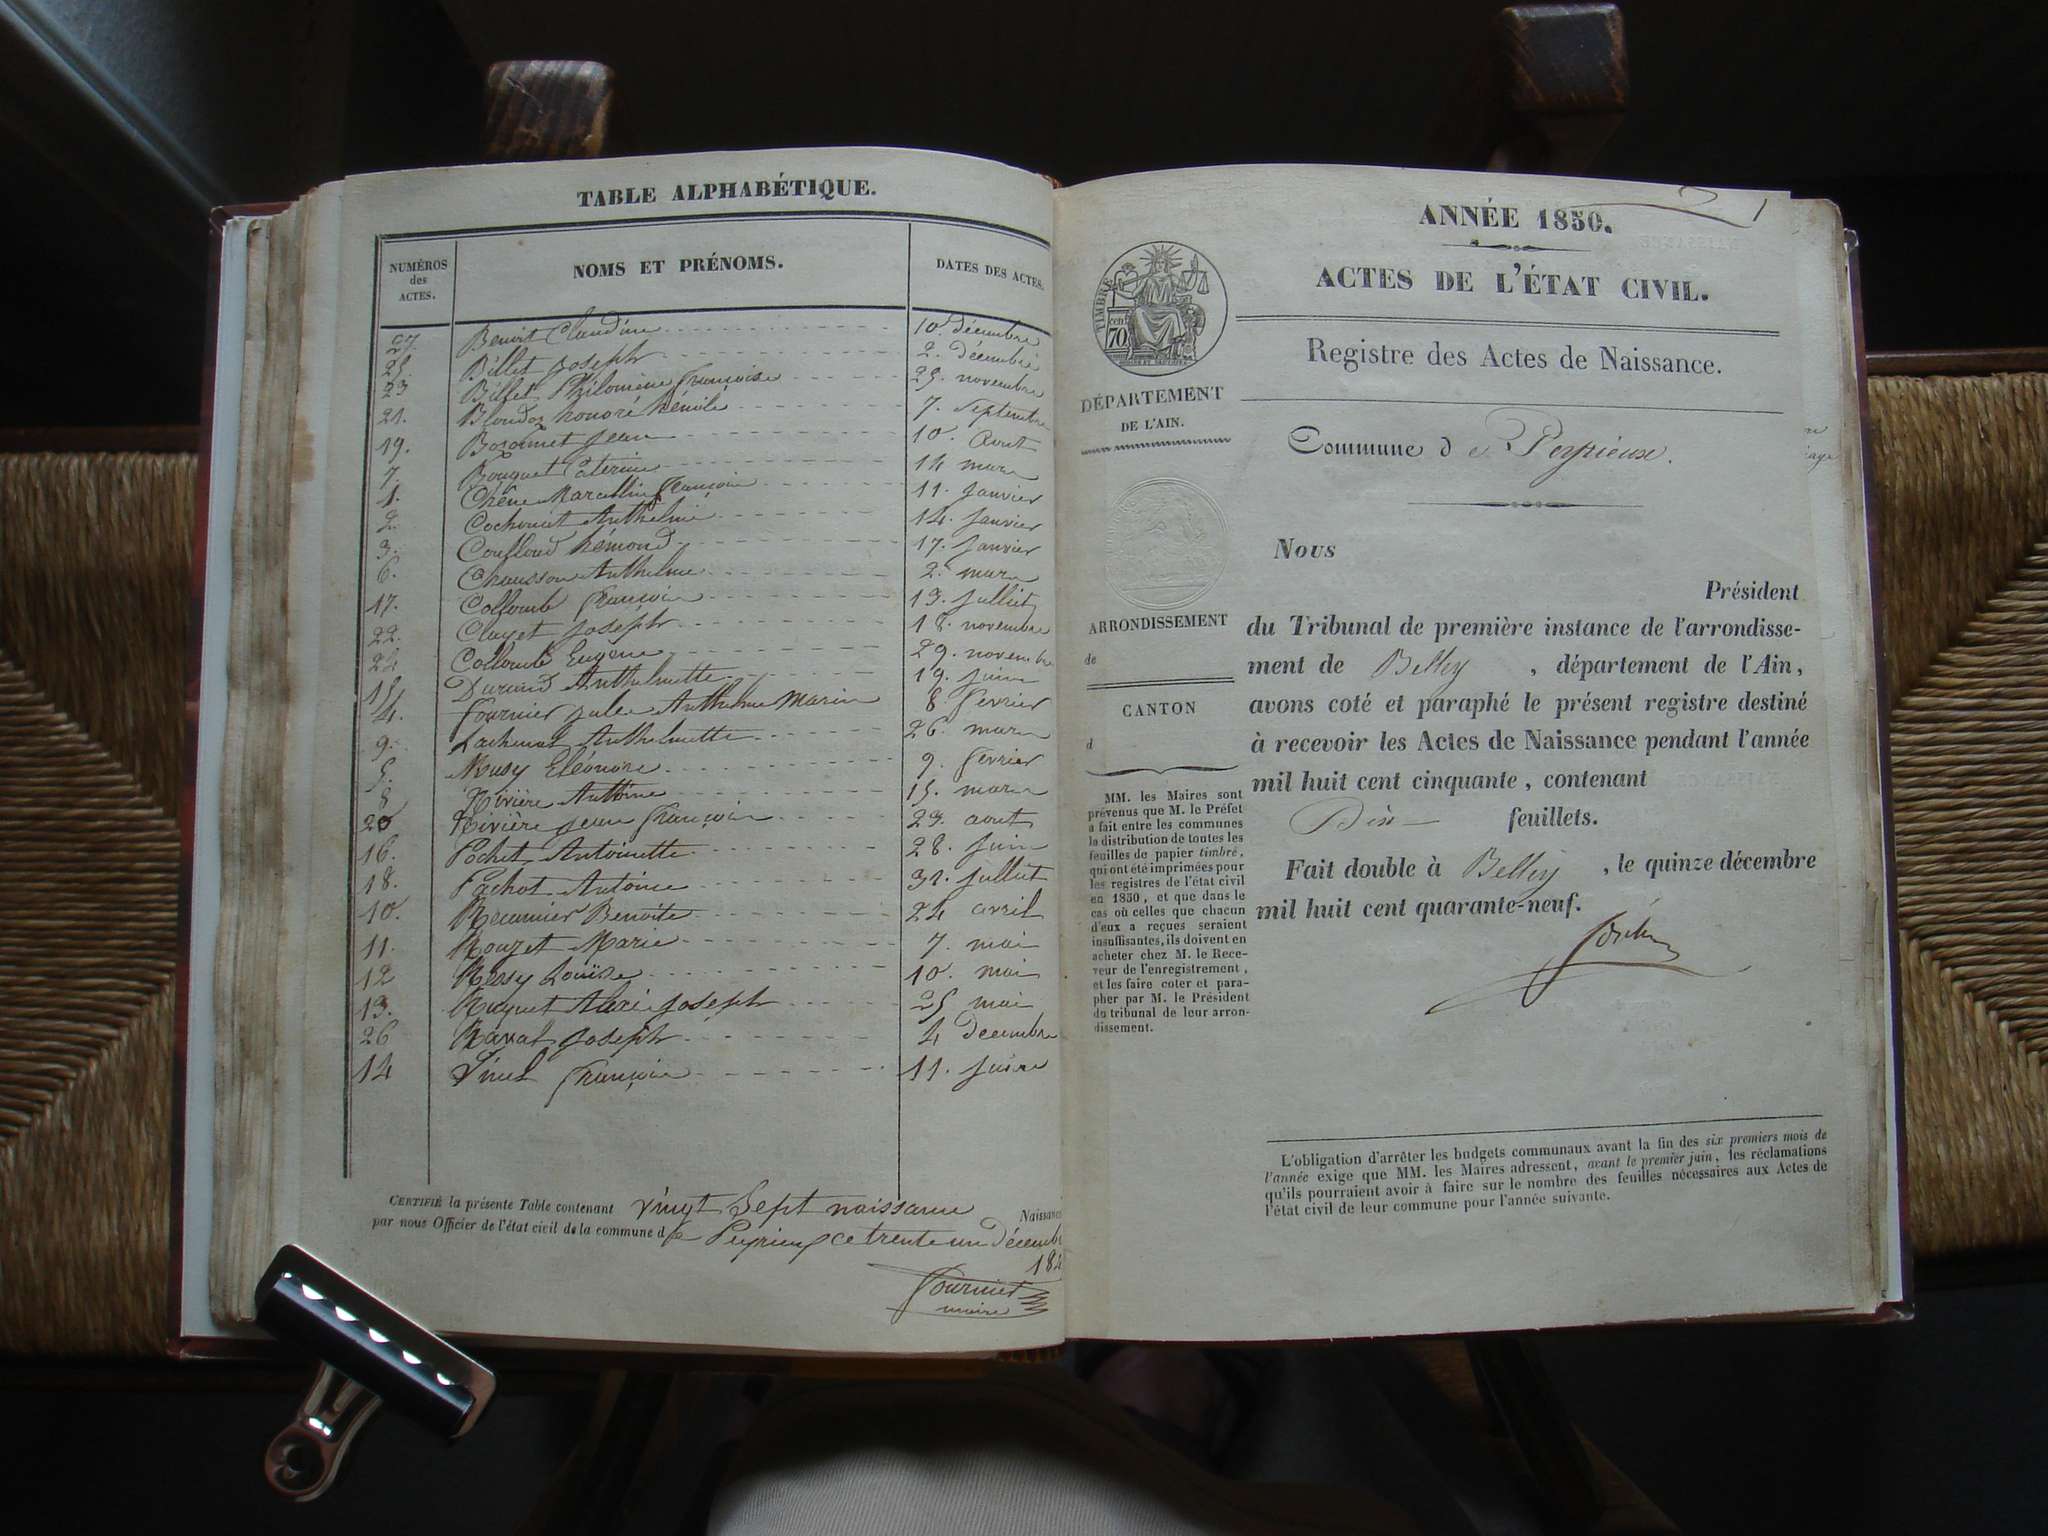 TABLE ALPHABÉTIQUE.
NUMÉROS des ACTES. NOMS ET PRÉNOMS. DATES DES ACTES.
27. Benoit Claudine 10 décembre
25. Billet Joseph 2. décembre
23 Billet Philomène Françoise 25. novembre
21. Blondoz honoré 7. Septembre
19. Jean 10. Aout
7. Bouquet Caterine 14 mars
1. Chêne Marcellin François 11. Janvier
2. Cochonat Anthelme 14. Janvier
3. 17. Janvier
6. Chausson Anthelme 2. mars
17. Collomb François 13. Juillet
22. Clayet Joseph 18. novembre
24 Collomb Eugène 29. novembre
15 Durand Anthelmette 19. Juin
4. Fournier Jules Anthelme Marin 8 Février
9. Lachenal Anthelmette 26. mars
5. Musy Eléonore 9. Février
8 Rivière Antoine 15. mars
20 Rivière Jean François 23. aout
16. Pochet Antoinette 28. Juin
18. Pachot Antoine 31. Juillet
10. Recumier Benoite 24 avril
11. Rouzet Marie 7. mai
12 Ressy Louise 10. mai
13. Ruguet Joseph 25 mai
26 Ravat Joseph 4 Decembre
14 François 11. Juin
CERTIFIÉ la présente Table contenant vingt Sept naissance Naissanc
par nous Officier de l'état civil de la commune de Peyrieux ce trente un Décemb
184
Fournier
maire
1
ANNÉE 1850.
ACTES DE L'ÉTAT CIVIL.
Registre des Actes de Naissance.
Commune de Peyrieux.
TIMBRE
cen
70
DÉPARTEMENT
DE L'AIN.
ARRONDISSEMENT
de
CANTON
d
MM. les Maires sont
prévenus que M. le Préfet
a fait entre les communes
la distribution de toutes les
feuilles de papier timbré,
qui ont été imprimées pour
les registres de l'état civil
en 1850, et que dans le
cas où celles que chacun
d'eux a reçues seraient
insuffisantes, ils doivent en
acheter chez M. le Rece-
veur de l'enregistrement,
et les faire coter et para-
pher par M. le Président
du tribunal de leur arron-
dissement.
Nous
Président
du Tribunal de première instance de l'arrondisse-
ment de Belley, département de l'Ain,
avons coté et paraphé le présent registre destiné
à recevoir les Actes de Naissance pendant l'année
mil huit cent cinquante, contenant
Dix feuillets.
Fait double à Belley, le quinze décembre
mil huit cent quarante-neuf.
L'obligation d'arrêter les budgets communaux avant la fin des six premiers mois de
l'année exige que MM. les Maires adressent, avant le premier juin, les réclamations
qu'ils pourraient avoir à faire sur le nombre des feuilles nécessaires aux Actes de
l'état civil de leur commune pour l'année suivante.